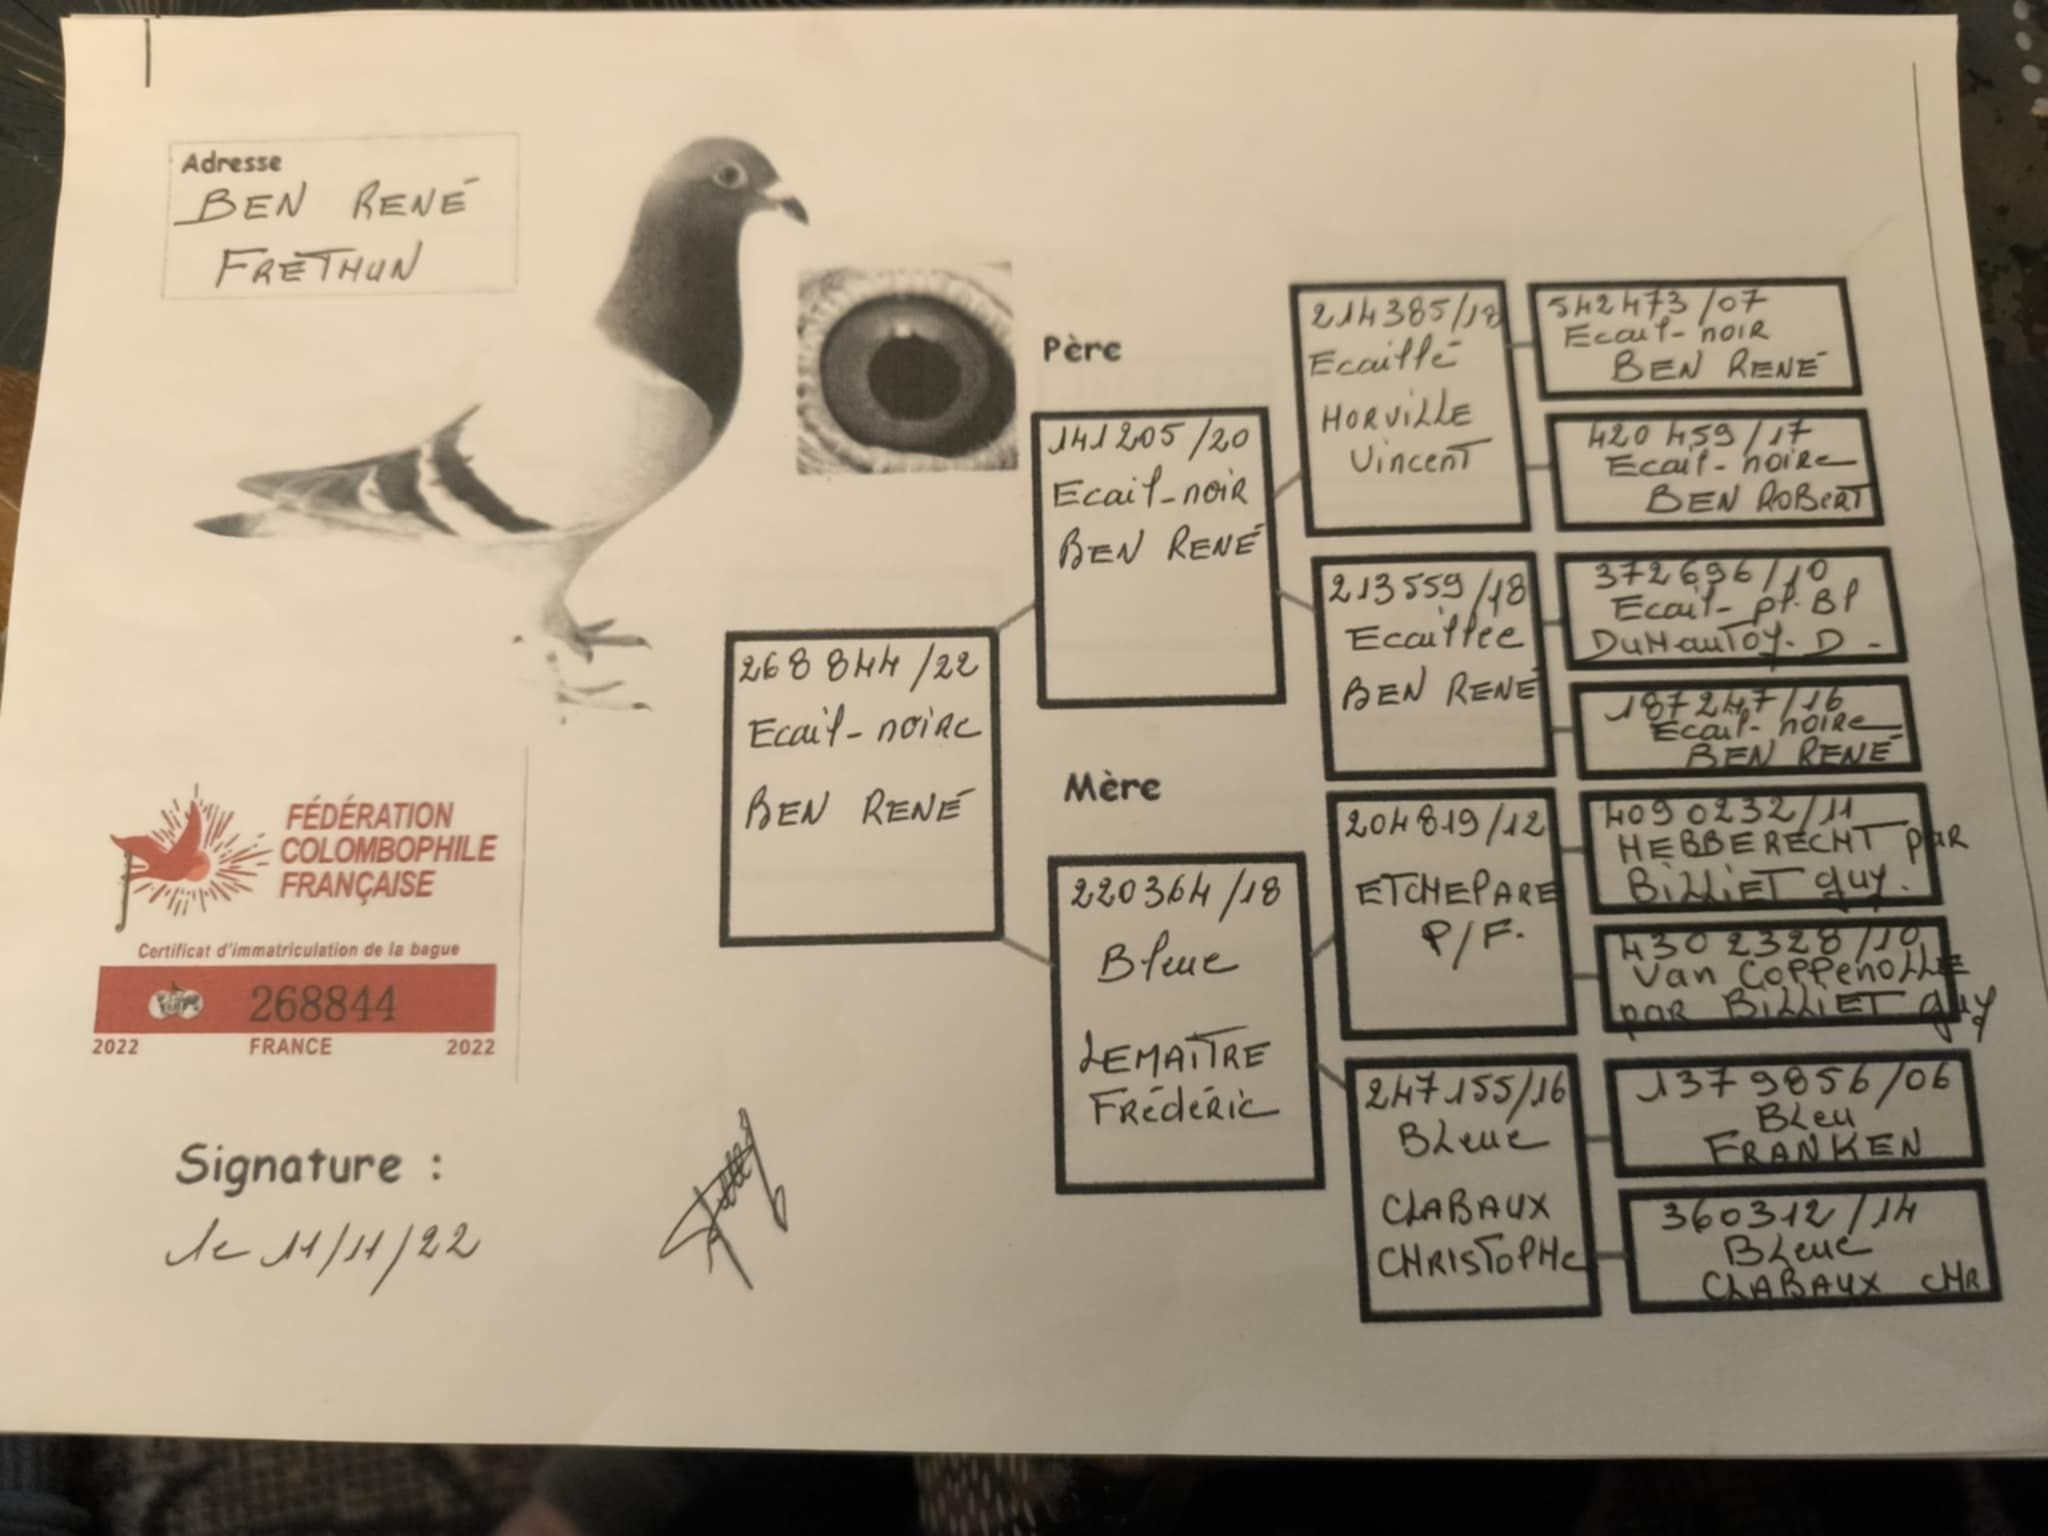 Adresse
BEN RENÉ
FRETHUN
Père
141205/20
Ecail-noir
BEN RENÉ
214385/18
Ecaillé
HORVILLE
Vincent
542473/07
Ecail-noir
BEN RENÉ
420459/17
Ecail-noire
BEN ROBERT
213559/18
Ecaillée
BEN RENÉ
372696/10
Ecail-pl.Bl
DuHauToy.D-
187247/16
Ecail-noire
BEN RENÉ
268844/22
Ecail-noire
BEN RENÉ
Mère
220364/18
Bleue
LEMAÎTRE
FRÉDÉRIC
204819/12
ETCHEPARE
P/F.
4090232/11
HEBBERECHT par
BILLIET guy.
4302328/10
Van COPPENOLLE
par BILLIET guy
247155/16
BLeue
CLABAUX
CHRISTOPHe
1379856/06
BLeu
FRANKEN
360312/14
BLeue
CLABAUX CHR
FÉDÉRATION
COLOMBOPHILE
FRANÇAISE
Certificat d'immatriculation de la bague
268844
2022 FRANCE 2022
Signature :
le 11/11/22